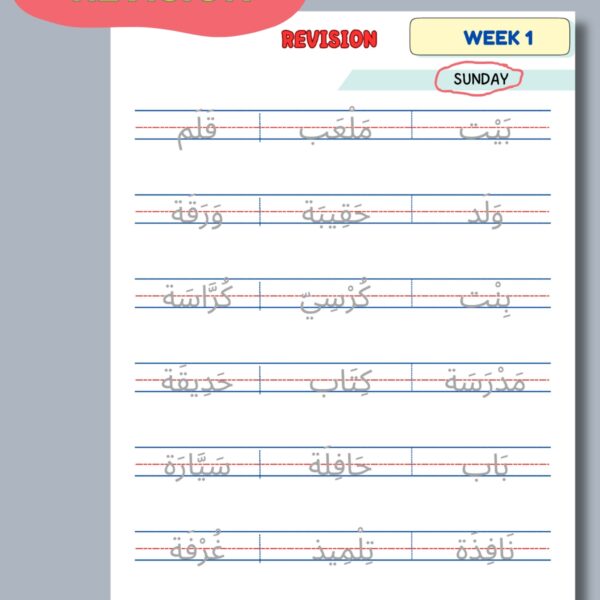 REVISION
REVISION
WEEK 1
SUNDAY
بَيْت مَلْعَب قَلَم
وَلَد حَقِيبَة وَرَقَة
بِنْت كُرْسِيّ كُرَّاسَة
مَدْرَسَة كِتَاب حَدِيقَة
بَاب حَافِلَة سَيَّارَة
نَافِذَة تِلْمِيذ غُرْفَة